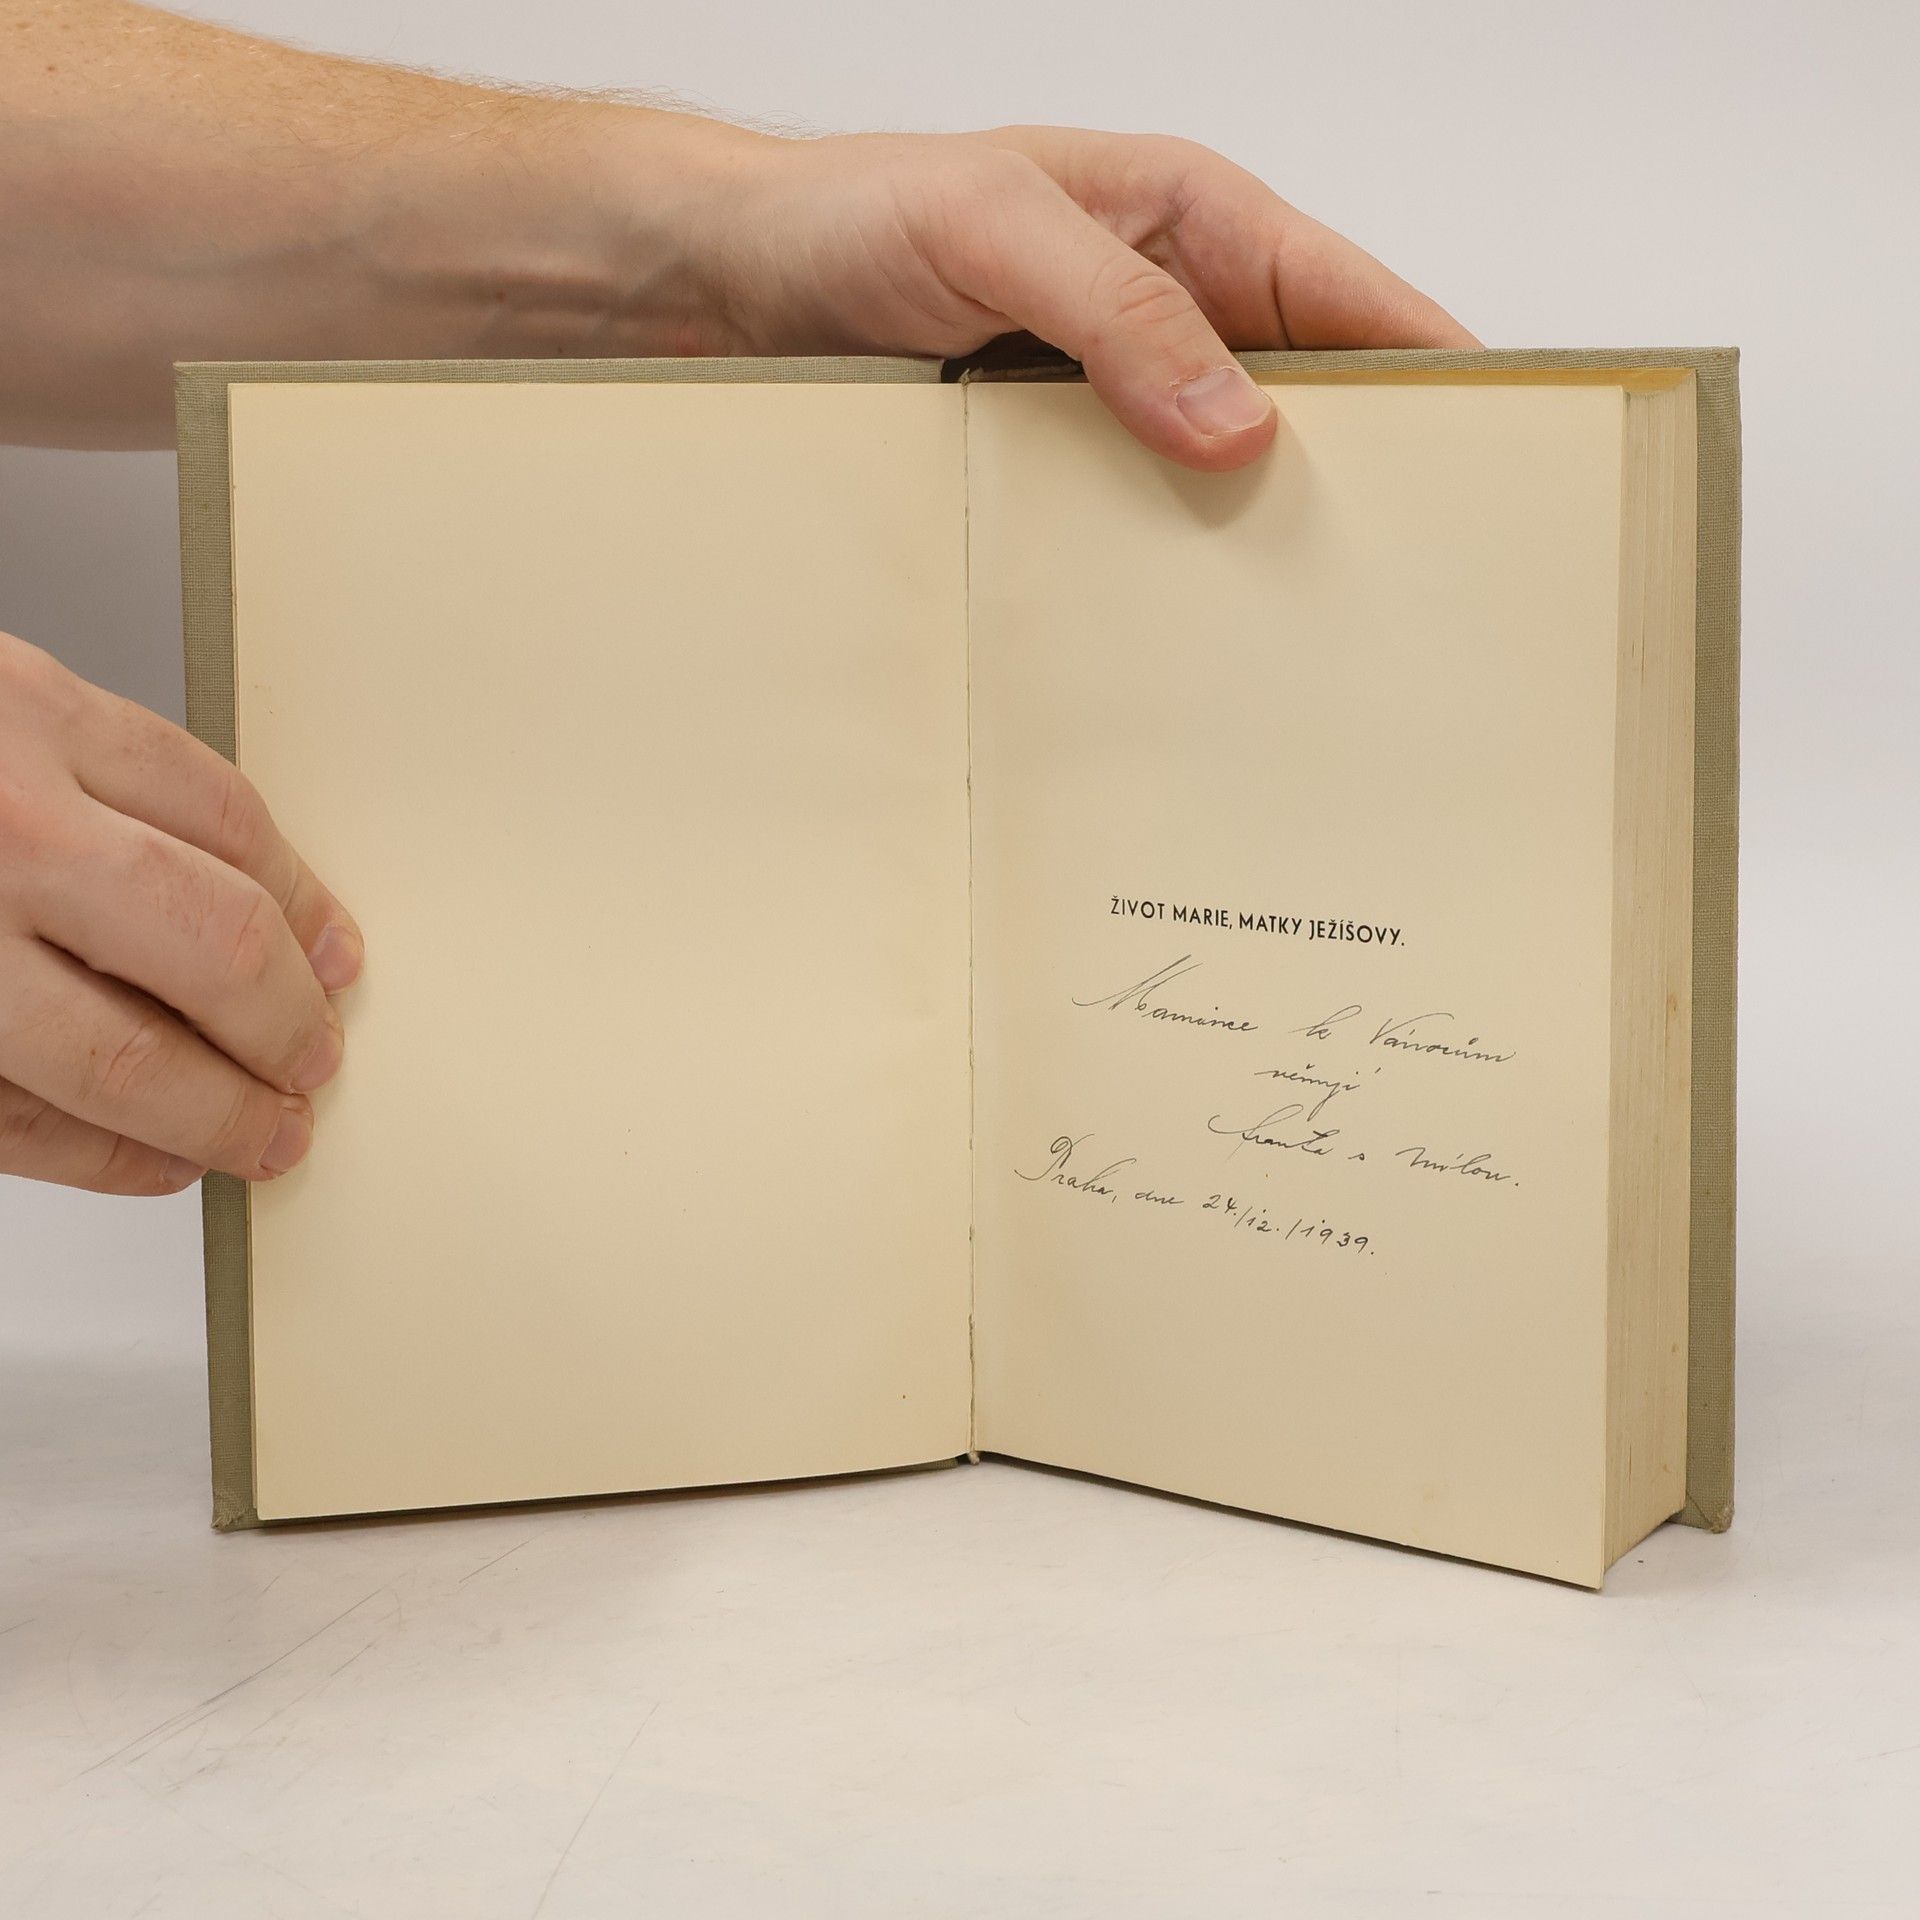 ŽIVOT MARIE, MATKY JEŽÍŠOVY.
Mamince k Vánocům
věnují
Franta s Mílou.
Praha, dne 24./12./1939.